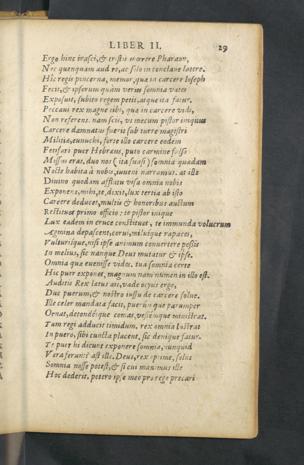 LIBER II. 29
Ergo hinc irasci, & tristis mœrere Pharaon,
Nec quenquam aud re, ac solo in conclaue latere.
Hic regis pincerna, memor, quæ in carcere Ioseph
Fecit, & ipsorum quàm verus somnia vates
Exposuit, subito regem petit, atque ita fatur.
Peccaui rex magne tibi, quæ in carcere vidi,
Non referens. nam scis, vt mecum pistor iniquus
Carcere damnatus fueris sub turre magistri
Militiæ, eunuchi, forte illo carcere eodem
Penset puer Hebræus, puto carmine falso
Missus eras, duo nos (ita suasi) somnia quadam
Nocte habita à nobis, iuueni narramus. at ille
Diuino quodam afflatu visa omnia nobis
Exponens, mihi, te, dixit, lux tertia ab isto
Carcere deducet, multis & honoribus auctum
Restituet primo officio: te pistor inique
Lux eadem in cruce constituet, te immunda volucrum
Agmina depascent, corui, miluique rapaces,
Vulturiique, nisi ipse animum conuertere possis
In melius, sic nanque Deus mutatur & ipse.
Omnia quæ euenisse vides. tua somnia certe
Hic puer exponet, magnum nam numen in illo est.
Auditis Rex lætus ait, vade ocyus ergo,
Duc puerum, & nostro iussu de carcere solue.
Ille celer mandata facit, puerumque parumper
Ornat, detondéque comas, vestémque ministrat.
Tum regi adducit timidum. rex omnia lustrat
In puero, sibi cuncta placent, sic denique fatur.
Te puer hi dicunt exponere somnia, nunquid
Vera ferunt? ast ille. Deus, rex optime, solus
Somnia nosse potest, & si cui maximus ille
Hoc dederit, potero ipse meo pro rege precari